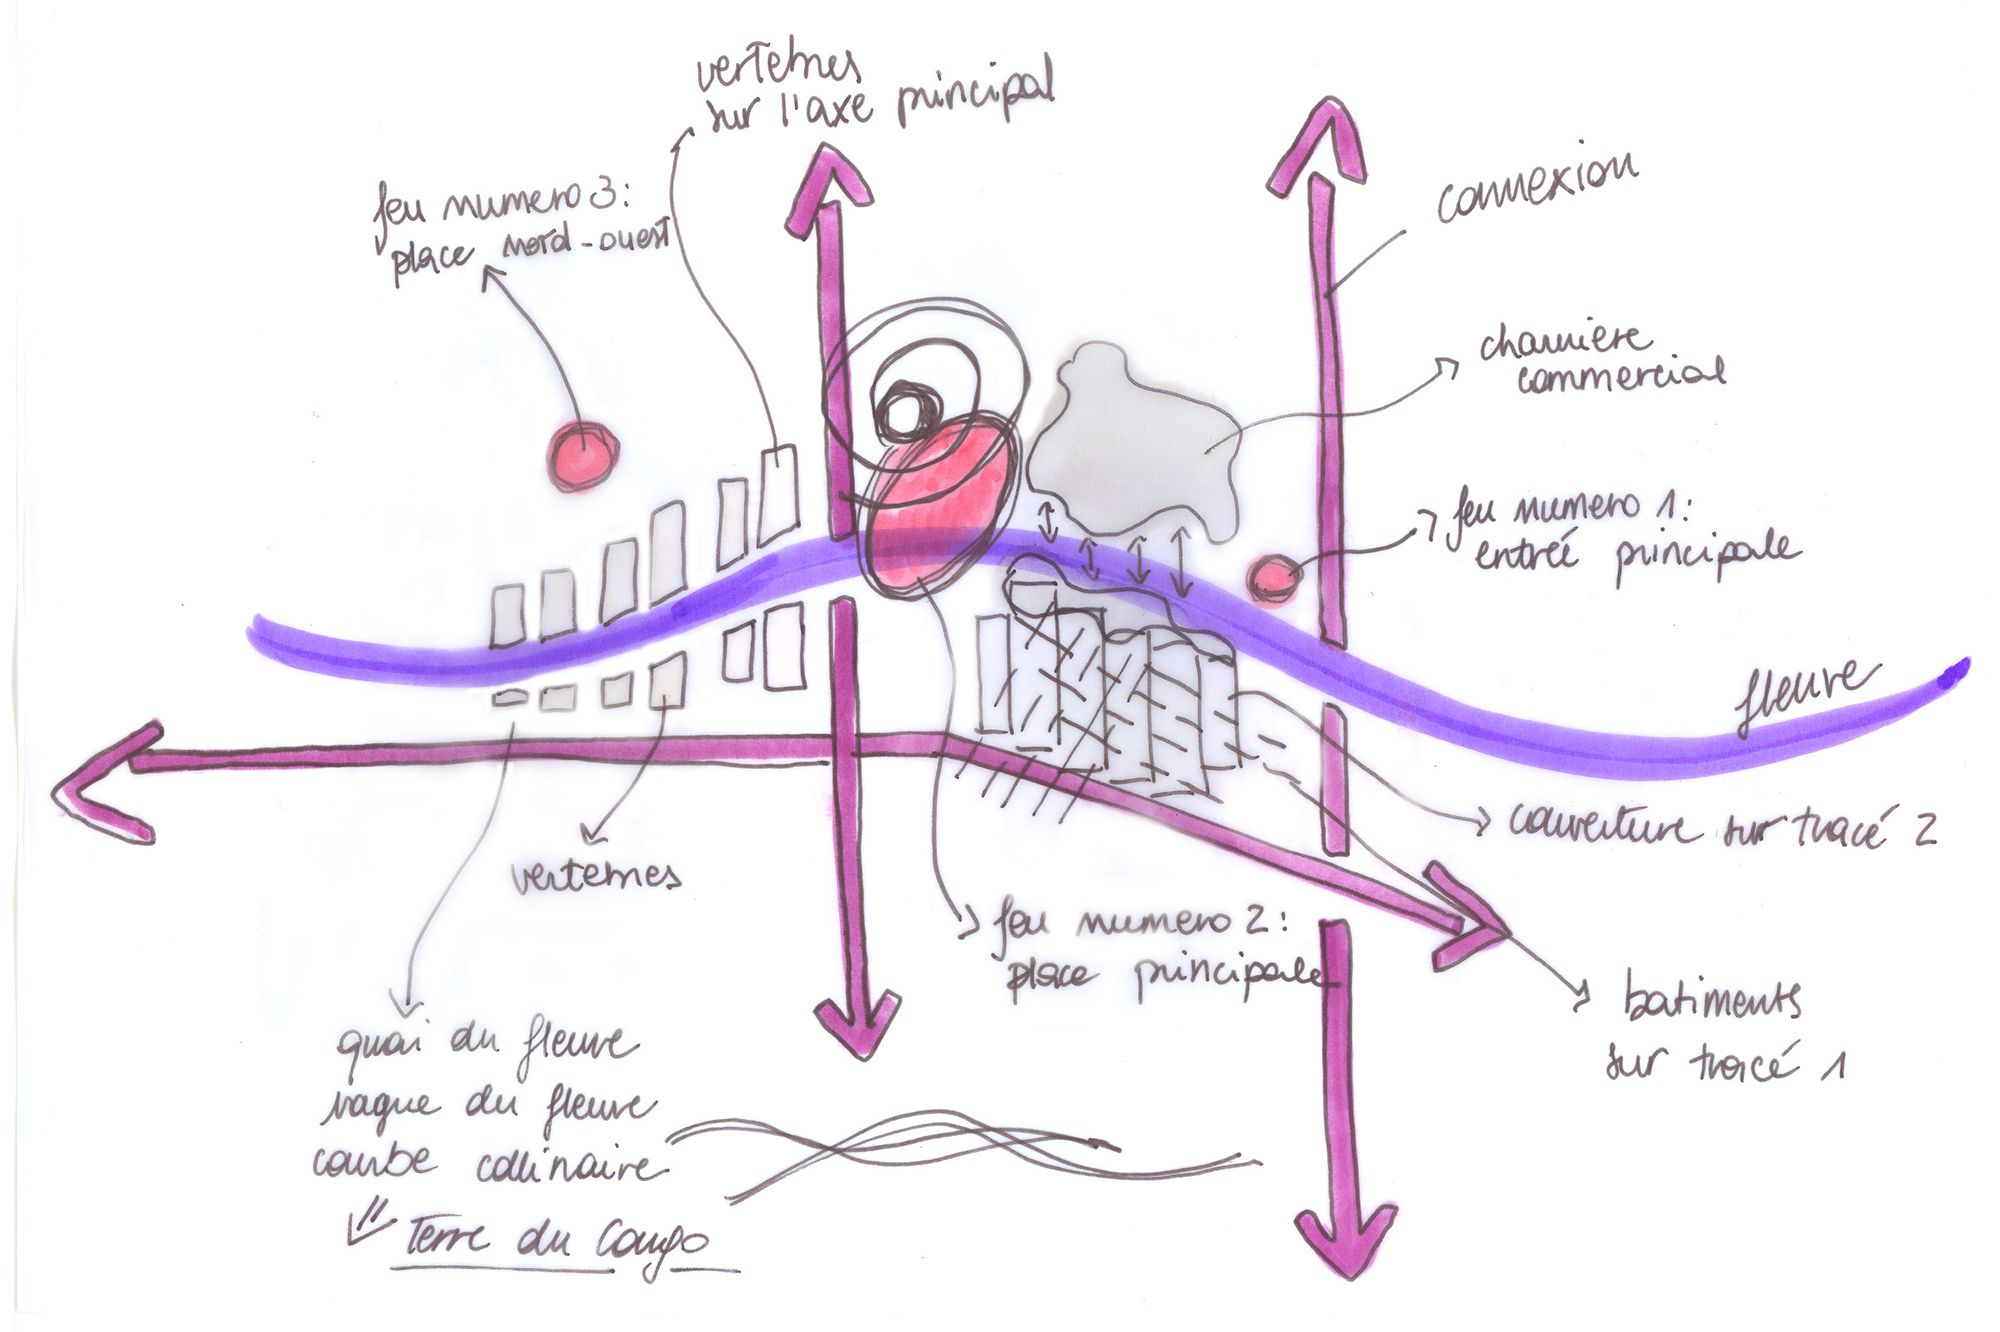 vertebres
sur l'axe principal
feu numero 3:
place nord-ouest
connexion
charniere
commercial
feu numero 1:
entreé principale
fleuve
couverture sur tracé 2
vertebres
feu numero 2:
place principale
batiments
sur tracé 1
quai du fleuve
vague du fleuve
courbe collinaire
Terre du Congo